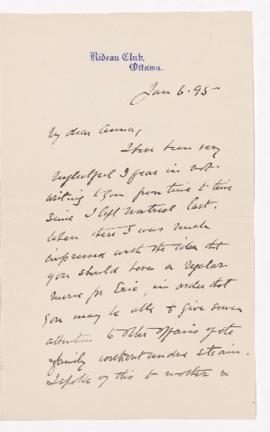 Rideau Club,
Ottawa.
Jan 6. 95
My dear Anna,
I have been very
neglectful I fear in not
writing to you from time to time
since I left Montreal last.
When there I was much
impressed with the idea that
you should have a regular
nurse for Eric, in order that
you may be able to give some
attention to other affairs of the
family without undue strain.
I spoke of this to mother &